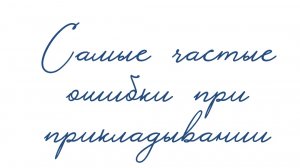 Самые частые
ошибки при
прикладывании